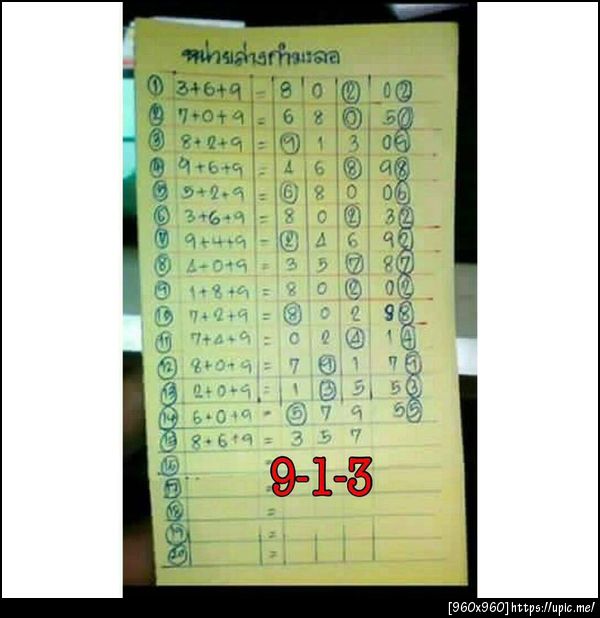 หน่วยล่างกำมะลอ
① 3+6+9 = 8 0 ② 0②
② 7+0+9 = 6 8 ⓪ 5⓪
③ 8+2+9 = ⑨ 1 3 0⑨
④ 9+6+9 = 4 6 ⑧ 9⑧
⑤ 5+2+9 = ⑥ 8 0 0⑥
⑥ 3+6+9 = 8 0 ② 3②
⑦ 9+4+9 = ② 4 6 9②
⑧ 4+0+9 = 3 5 ⑦ 8⑦
⑨ 1+8+9 = 8 0 ② 0②
⑩ 7+2+9 = ⑧ 0 2 98
⑪ 7+4+9 = 0 2 ④ 1④
⑫ 8+0+9 = 7 ⑨ 1 7⑨
⑬ 2+0+9 = 1 ③ 5 5③
⑭ 6+0+9 = ⑤ 7 9 5⑤
⑮ 8+6+9 = 3 5 7
⑯ =
9-1-3
⑰ =
⑱ =
⑲ =
⑳ =
[960x960] https://upic.me/